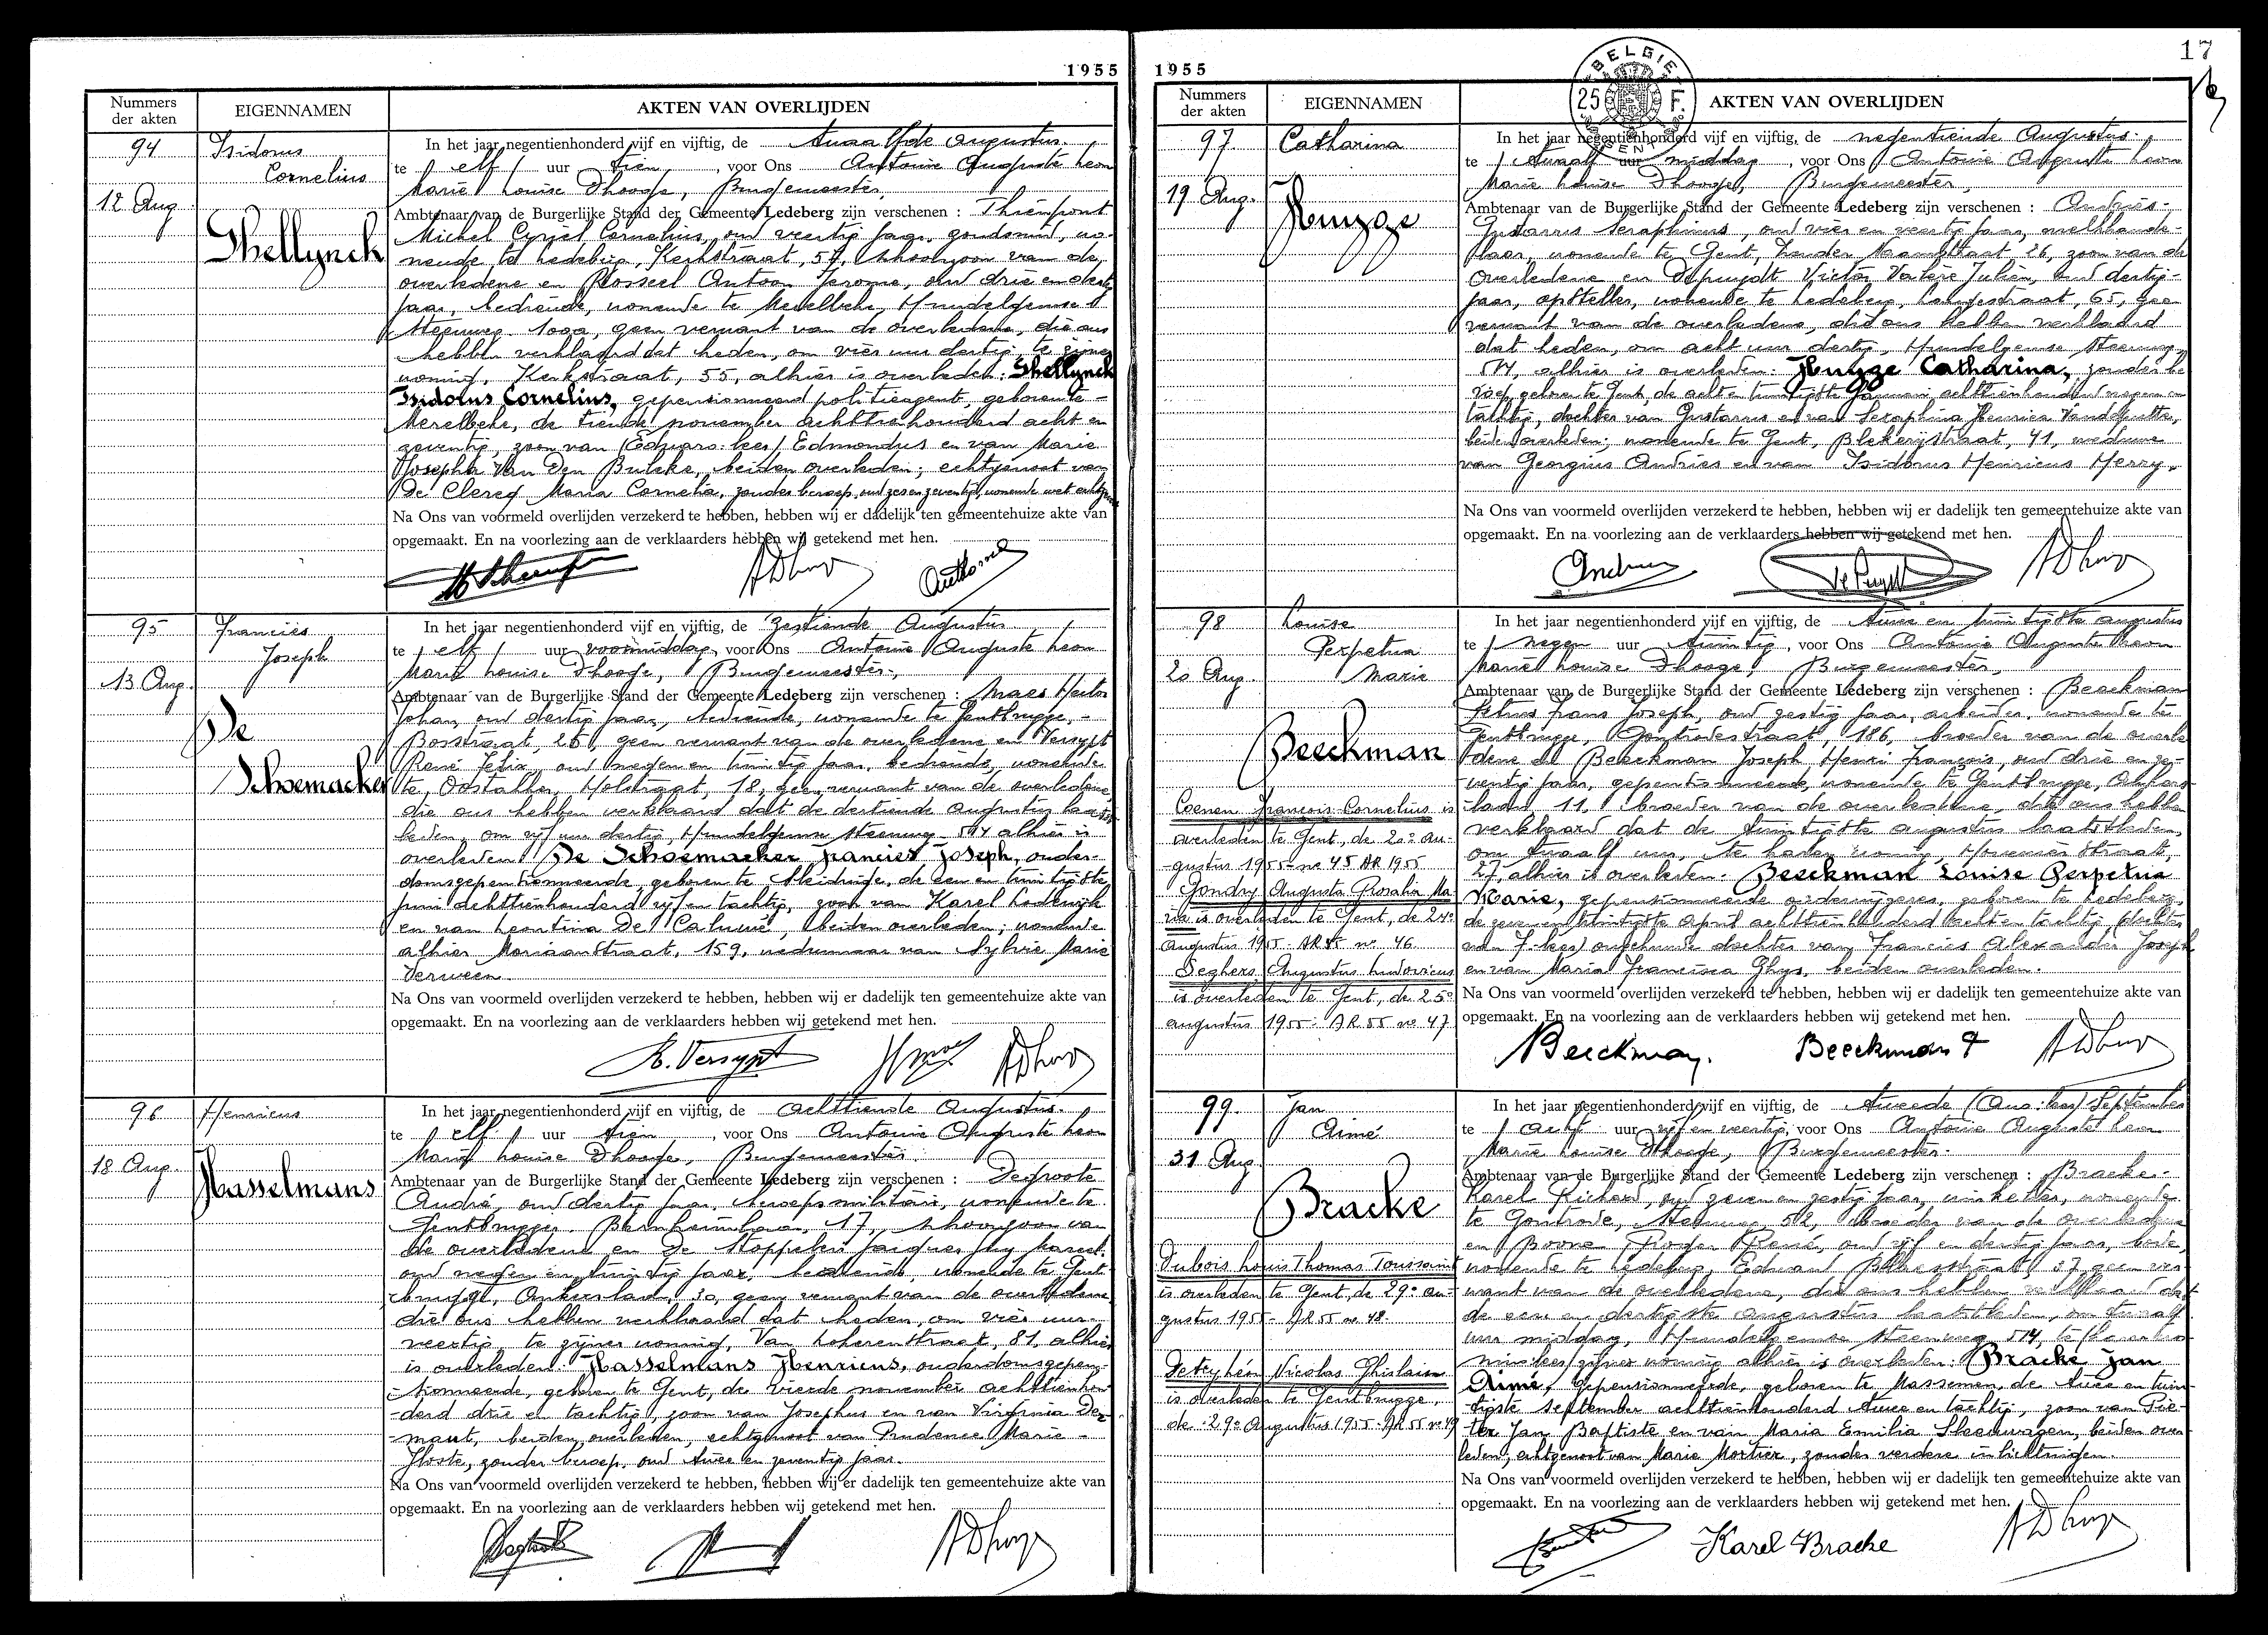 1955
Nummers der akten
EIGENNAMEN
AKTEN VAN OVERLIJDEN
94
Isidorus
Cornelius
12 Aug.
Ghellynck
In het jaar negentienhonderd vijf en vijftig, de twaalfde augustus
te elf uur tien, voor Ons Antoine Auguste Leon
Marie Louise Dhooge, Burgemeester,
Ambtenaar van de Burgerlijke Stand der Gemeente Ledeberg zijn verschenen : Thienpont
Michel Cyriel Cornelius, oud veertig jaar, goudsmid, wo-
nende te Ledeberg, Kerkstraat, 57, schoonzoon van de
overledene en Rosseel Antoon Jerome, oud drie en dertig
jaar, bediende, wonende te Merelbeke, Hundelgemse
steenweg 100a, geen verwant van de overledene, die ons
hebben verklaard dat heden, om vier uur dertig, te zijner
woning, Kerkstraat, 55, alhier is overleden: Ghellynck
Isidorus Cornelius, gepensionneerd politieagent, geboren te
Merelbeke, de tiende november achttienhonderd acht en
zeventig, zoon van (Eduard: lees) Edmondus en van Marie
Josepha Van Den Bulcke, beiden overleden; echtgenoot van
De Clercq Maria Cornelia, zonder beroep, oud zes en zeventig, wonende met echtgenoot
Na Ons van voormeld overlijden verzekerd te hebben, hebben wij er dadelijk ten gemeentehuize akte van
opgemaakt. En na voorlezing aan de verklaarders hebben wij getekend met hen.
95
Francies
Joseph
13 Aug.
De
Schoemacker
In het jaar negentienhonderd vijf en vijftig, de zestiende Augustus
te elf uur voormiddag, voor Ons Antoine Auguste Leon
Marie Louise Dhooge, Burgemeester,
Ambtenaar van de Burgerlijke Stand der Gemeente Ledeberg zijn verschenen : Maes Hector
Johan, oud dertig jaar, bediende, wonende te Gentbrugge,
Bosstraat, 26, geen verwant van de overledene en Versypt
René Felix, oud negen en twintig jaar, bediende, wonende
te Oostakker, Holstraat, 18, geen verwant van de overledene
die ons hebben verklaard dat de dertiende augustus laatst-
leden, om vijf uur dertig, Hundelgemse steenweg 514 alhier is
overleden: De Schoemacker Francies Joseph, ouder-
domsgepensionneerde, geboren te Meidrige, de een en twintigste
juni achttienhonderd vijf en tachtig, zoon van Karel Lodewijk
en van Leontina De Caluwé, beiden overleden; wonende
alhier Moriaanstraat, 159, weduwnaar van Sylvie Marie
Verween.
Na Ons van voormeld overlijden verzekerd te hebben, hebben wij er dadelijk ten gemeentehuize akte van
opgemaakt. En na voorlezing aan de verklaarders hebben wij getekend met hen.
R. Versypt
96
Henricus
18 Aug.
Hasselmans
In het jaar negentienhonderd vijf en vijftig, de achttiende Augustus.
te elf uur tien, voor Ons Antoine Auguste Leon
Marie Louise Dhooge, Burgemeester
Ambtenaar van de Burgerlijke Stand der Gemeente Ledeberg zijn verschenen : Degroote
André, oud dertig jaar, beroepsmilitair, wonende te
Gentbrugge, 17, schoonzoon van
de overledene en De Stoppeleir Jacques Guy Marcel,
oud negen en twintig jaar, bediende, wonende te Gent-
brugge, 30, geen verwant van de overledene
die ons hebben verklaard dat heden, om vier uur
veertig, te zijner woning, Van Lokerenstraat, 81, alhier
is overleden: Hasselmans Henricus, ouderdomsgepen-
sionneerde, geboren te Gent, de vierde november achttienhon-
derd drie en tachtig, zoon van Josephus en van Virginia De-
maut, beiden overleden, echtgenoot van Prudence Marie
Hoste, zonder beroep, oud twee en zeventig jaar.
Na Ons van voormeld overlijden verzekerd te hebben, hebben wij er dadelijk ten gemeentehuize akte van
opgemaakt. En na voorlezing aan de verklaarders hebben wij getekend met hen.
17
1955
BELGIE
25 F.
Nummers der akten
EIGENNAMEN
AKTEN VAN OVERLIJDEN
97
Catharina
19 Aug.
Huyge
In het jaar negentienhonderd vijf en vijftig, de negentiende Augustus.
te twaalf uur middag, voor Ons Antoine Auguste Leon
Marie Louise Dhooge, Burgemeester,
Ambtenaar van de Burgerlijke Stand der Gemeente Ledeberg zijn verschenen : Andries
Gustavus Seraphinus, oud vier en veertig jaar, melkhande-
laar, wonende te Gent, 26, zoon van de
overledene en Depuydt Victor Valère Julien, oud dertig
jaar, opsteller, wonende te Ledeberg, Langestraat, 65, geen
verwant van de overledene, die ons hebben verklaard
dat heden, om acht uur dertig, Hundelgemse steenweg
514, alhier is overleden: Huyge Catharina, zonder be-
roep, geboren te Gent, de acht en twintigste Januari achttienhonderd negen en
tachtig, dochter van Gustavus en van Seraphina Henrica Vandeputte,
beiden overleden; wonende te Gent, Blekerijstraat, 41, weduwe
van Georgius Andries en van Isidorus Henricus Herry.
Na Ons van voormeld overlijden verzekerd te hebben, hebben wij er dadelijk ten gemeentehuize akte van
opgemaakt. En na voorlezing aan de verklaarders hebben wij getekend met hen.
98
Louise
Perpetua
Marie
20 Aug.
Beeckman
Coenen François Cornelius is
overleden te Gent, de 20e au-
gustus 1955 - no 45 AR 1955
Gondry Augusta Rosalia Ma-
ria is overleden te Gent, de 24e
augustus 1955 - AR 55 no 46.
Seghers Augustus Ludovicus
is overleden te Gent, de 25e
augustus 1955 - AR 55 no 47
In het jaar negentienhonderd vijf en vijftig, de twee en twintigste augustus
te negen uur twintig, voor Ons Antoine Auguste Leon
Marie Louise Dhooge, Burgemeester,
Ambtenaar van de Burgerlijke Stand der Gemeente Ledeberg zijn verschenen : Beeckman
Petrus Frans Joseph, oud zestig jaar, arbeider, wonende te
Gentbrugge, Gontrodestraat, 186, broeder van de overle-
dene en Beeckman Joseph Henri François, oud drie en ze-
ventig jaar, gepensionneerde, wonende te Gentbrugge,
11, broeder van de overledene, die ons hebben
verklaard dat de twintigste augustus laatstleden,
om twaalf uur, te harer woning, Hoveniersstraat,
27, alhier is overleden: Beeckman Louise Perpetua
Marie, gepensionneerde onderwijzeres, geboren te Ledeberg,
de zeven en twintigste april achttienhonderd acht en tachtig (dochter
van F. lees) ongehuwde dochter van Francies Alexander Joseph
en van Maria Francisca Ghys, beiden overleden.
Na Ons van voormeld overlijden verzekerd te hebben, hebben wij er dadelijk ten gemeentehuize akte van
opgemaakt. En na voorlezing aan de verklaarders hebben wij getekend met hen.
Beeckman.
Beeckman
99.
Jan
Aimé
31 Aug.
Bracke
Dubois Louis Thomas Toussaint
is overleden te Gent, de 29e au-
gustus 1955 - AR 55 no 48.
Nicolas Ghislain
is overleden te Gentbrugge,
de 29e Augustus 1955 - AR 55 no 49
In het jaar negentienhonderd vijf en vijftig, de tweede (Aug: lees) September
te acht uur vijf en veertig, voor Ons Antoine Auguste Leon
Marie Louise Dhooge, Burgemeester.
Ambtenaar van de Burgerlijke Stand der Gemeente Ledeberg zijn verschenen : Bracke
Karel Richard, oud zeven en zestig jaar, winkelier, wonende
te Gontrode, Steenweg, 52, broeder van de overledene
en Boone Roger René, oud vijf en dertig jaar, bode,
wonende te Ledeberg, Edward Blaesstraat, 37, geen ver-
want van de overledene, die ons hebben verklaard dat
de een en dertigste augustus laatstleden, om twaalf
uur middag, Hundelgemse steenweg, 514,
alhier is overleden: Bracke Jan
Aimé, gepensionneerde, geboren te Massemen, de twee en twin-
tigste september achttienhonderd twee en tachtig, zoon van Pie-
ter Jan Baptiste en van Maria Emilia Steenwagen, beiden over-
leden, echtgenoot van Marie Mortier, zonder verdere inlichtingen.
Na Ons van voormeld overlijden verzekerd te hebben, hebben wij er dadelijk ten gemeentehuize akte van
opgemaakt. En na voorlezing aan de verklaarders hebben wij getekend met hen.
Karel Bracke